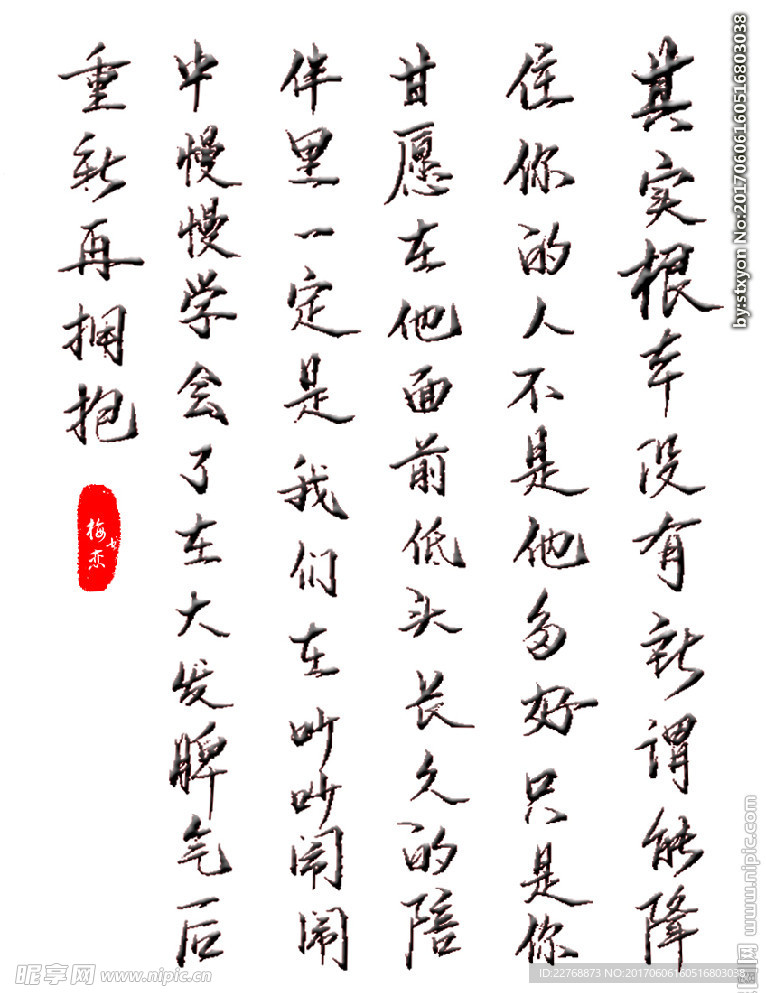 其实根本没有新谓能降
住你的人不是他多好只是你
甘愿在他面前低头长久的陪
伴里一定是我们在吵吵闹闹
中慢慢学会了在大发脾气后
重新再拥抱
梅恋
by:stxyon No:20170606160516803038
昵享网 www.nipic.cn
昵图网 www.nipic.com
ID:22768873 NO:20170606160516803038